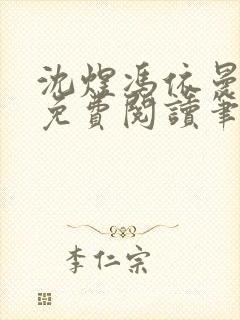 沈煜馮依晨
免費閱讀筆
李仁宗